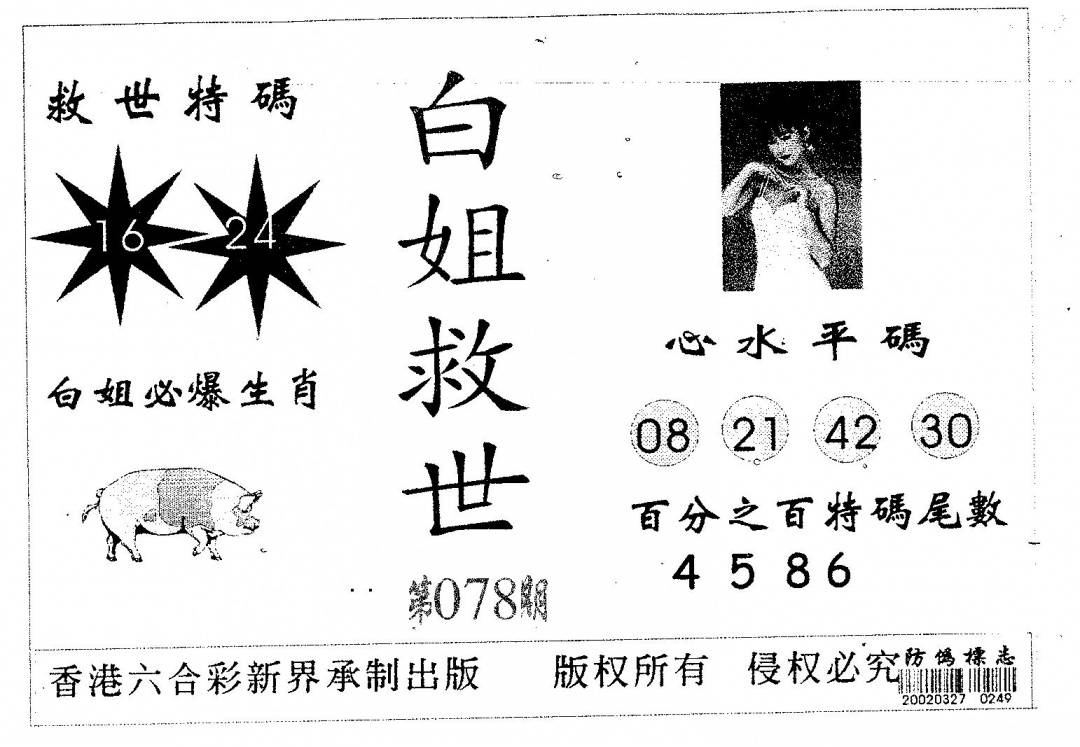 救世特碼
16 24
白姐必爆生肖
白姐救世
第078期
心水平碼
08 21 42 30
百分之百特碼尾數
4 5 8 6
香港六合彩新界承制出版 版权所有 侵权必究
防偽標志
20020327 0249